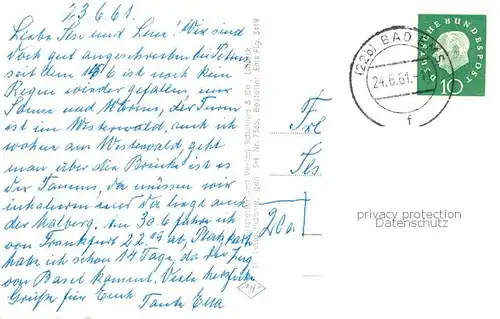 23.6.61.
Liebe Ilse und Leni! Wir sind
doch gut angeschrieben bei Petrus
seit dem 15/6 ist noch kein
Regen wieder gefallen, nur
Sonne und Wärme, der Turm
ist im Westerwald, auch ich
wohne am Westerwald, geht
man über die Brücke ist es
der Taunus, da müssen wir
inhalieren und da liegt auch
der Malberg. Am 30 6 fahre ich
von Frankfurt 22.09 ab, Platzkarte
habe ich schon 14 Tage, da der Zug
von Basel kommt. Viele herzliche
Grüße für Euch Tante Ella
Verlag Schöning & Co., Lübeck
SH Nr. 7363, Bestellnr. Ems Rg. 3419
Frl
Ils
(22b) BAD EMS
24.6.61.-
f
DEUTSCHE BUNDESPOST
10
privacy protection
Datenschutz